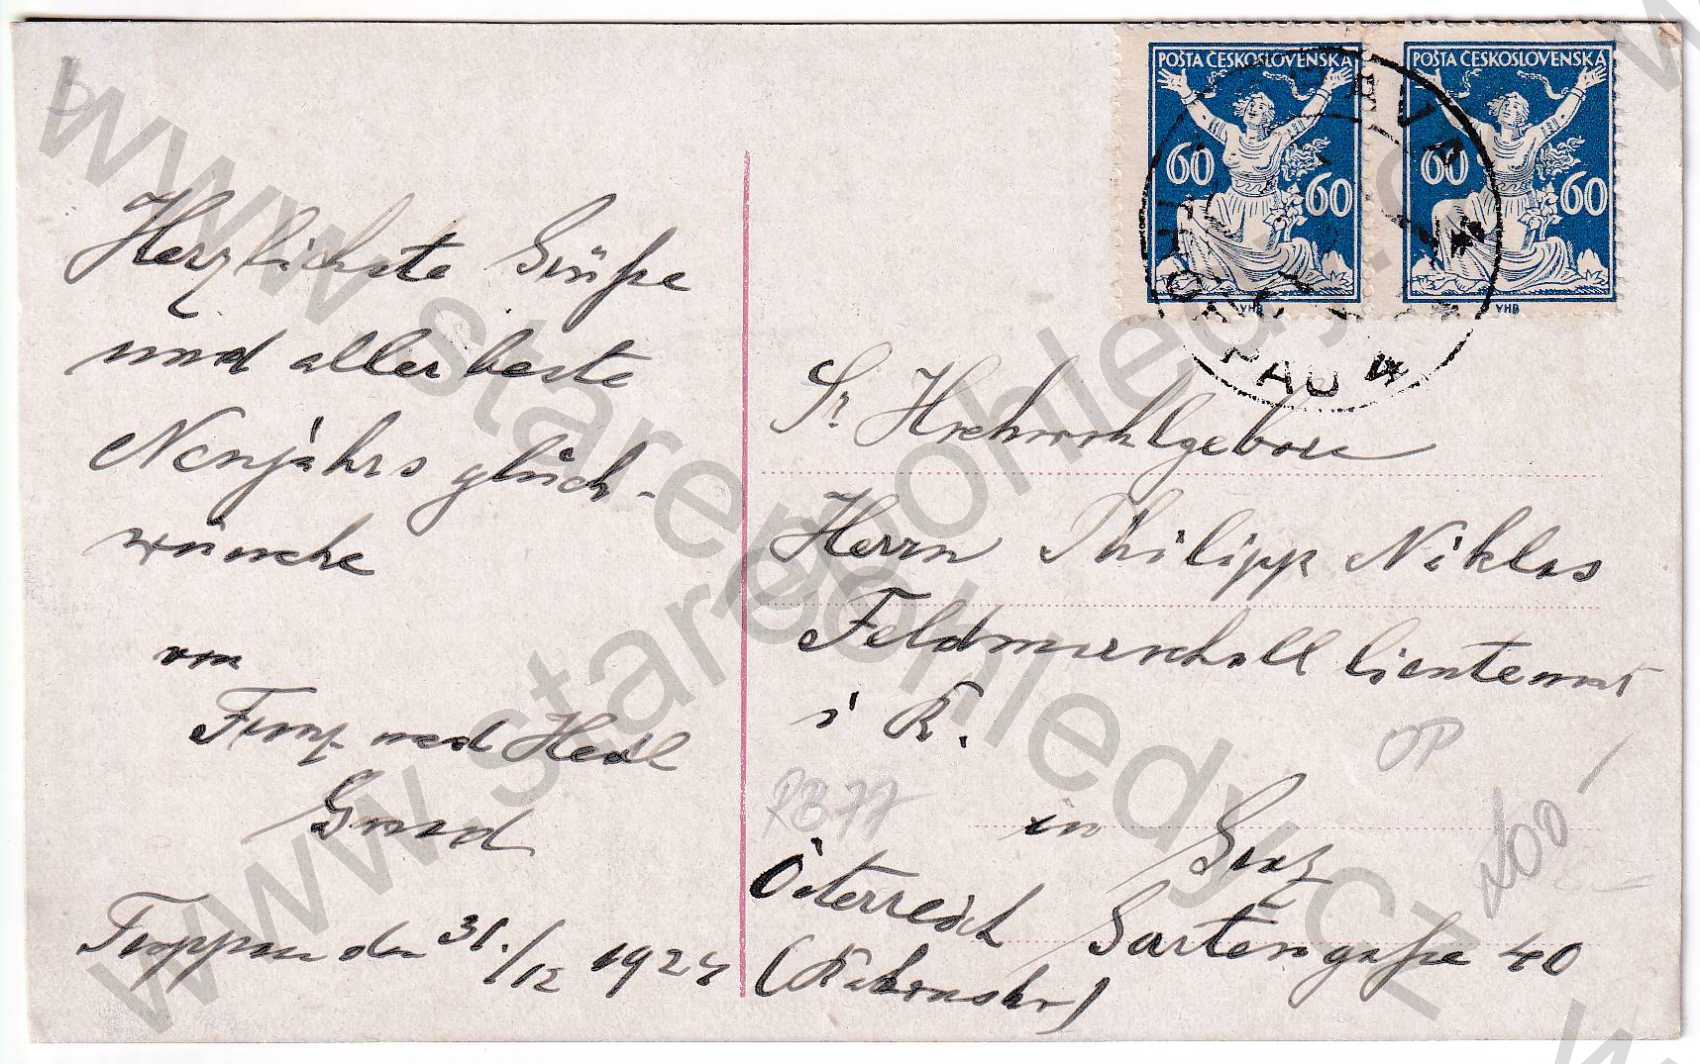 Herzlichste Grüße
und allerbeste
Neujahrsglück-
wünsche
von
und Hedl
Troppau den 31./12 1924
POŠTA ČESKOSLOVENSKÁ
60
60
VHB
POŠTA ČESKOSLOVENSKÁ
60
60
VHB
OPAVA
TROPPAU 4
Sr Hochwohlgebore
Herrn Philipp Niklas
Feldmarschalllieutenant
i R.
in Graz
Österreich Gartengaße 40
OP
RB77
www.starepohledy.cz
www.starepohledy.cz